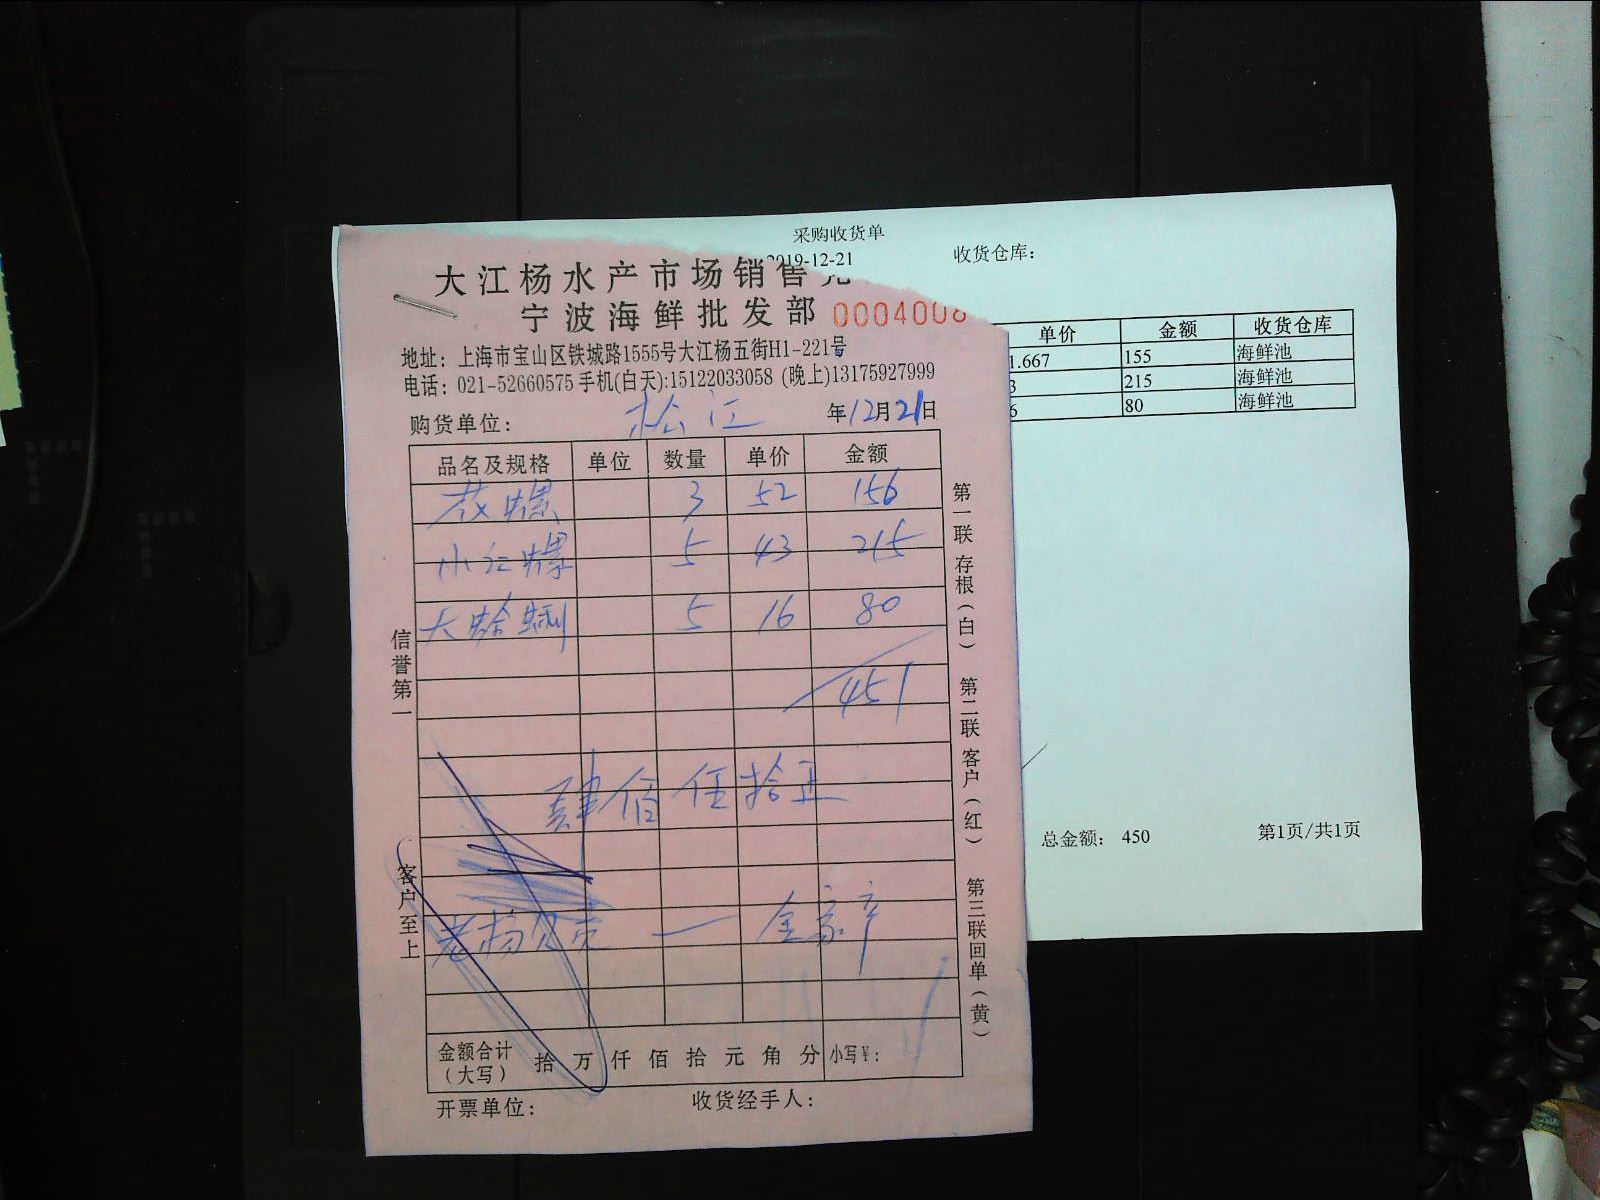 采购收货单
2019-12-21
收货仓库：
单价 金额 收货仓库
1.667 155 海鲜池
3 215 海鲜池
6 80 海鲜池
总金额： 450 第1页/共1页
大江杨水产市场销售
宁波海鲜批发部 0004006
地址：上海市宝山区铁城路1555号大江杨五街H1-221号
电话：021-52660575 手机(白天):15122033058 (晚上)13175927999
购货单位： 松江 年12月21日
品名及规格 单位 数量 单价 金额
花螺 3 52 156
小红螺 5 43 215
大蛤蜊 5 16 80
451
肆佰伍拾正
老杨 一 全家产
金额合计（大写） 拾 万 仟 佰 拾 元 角 分 小写¥：
开票单位： 收货经手人：
信誉第一
客户至上
第一联存根（白）
第二联客户（红）
第三联回单（黄）